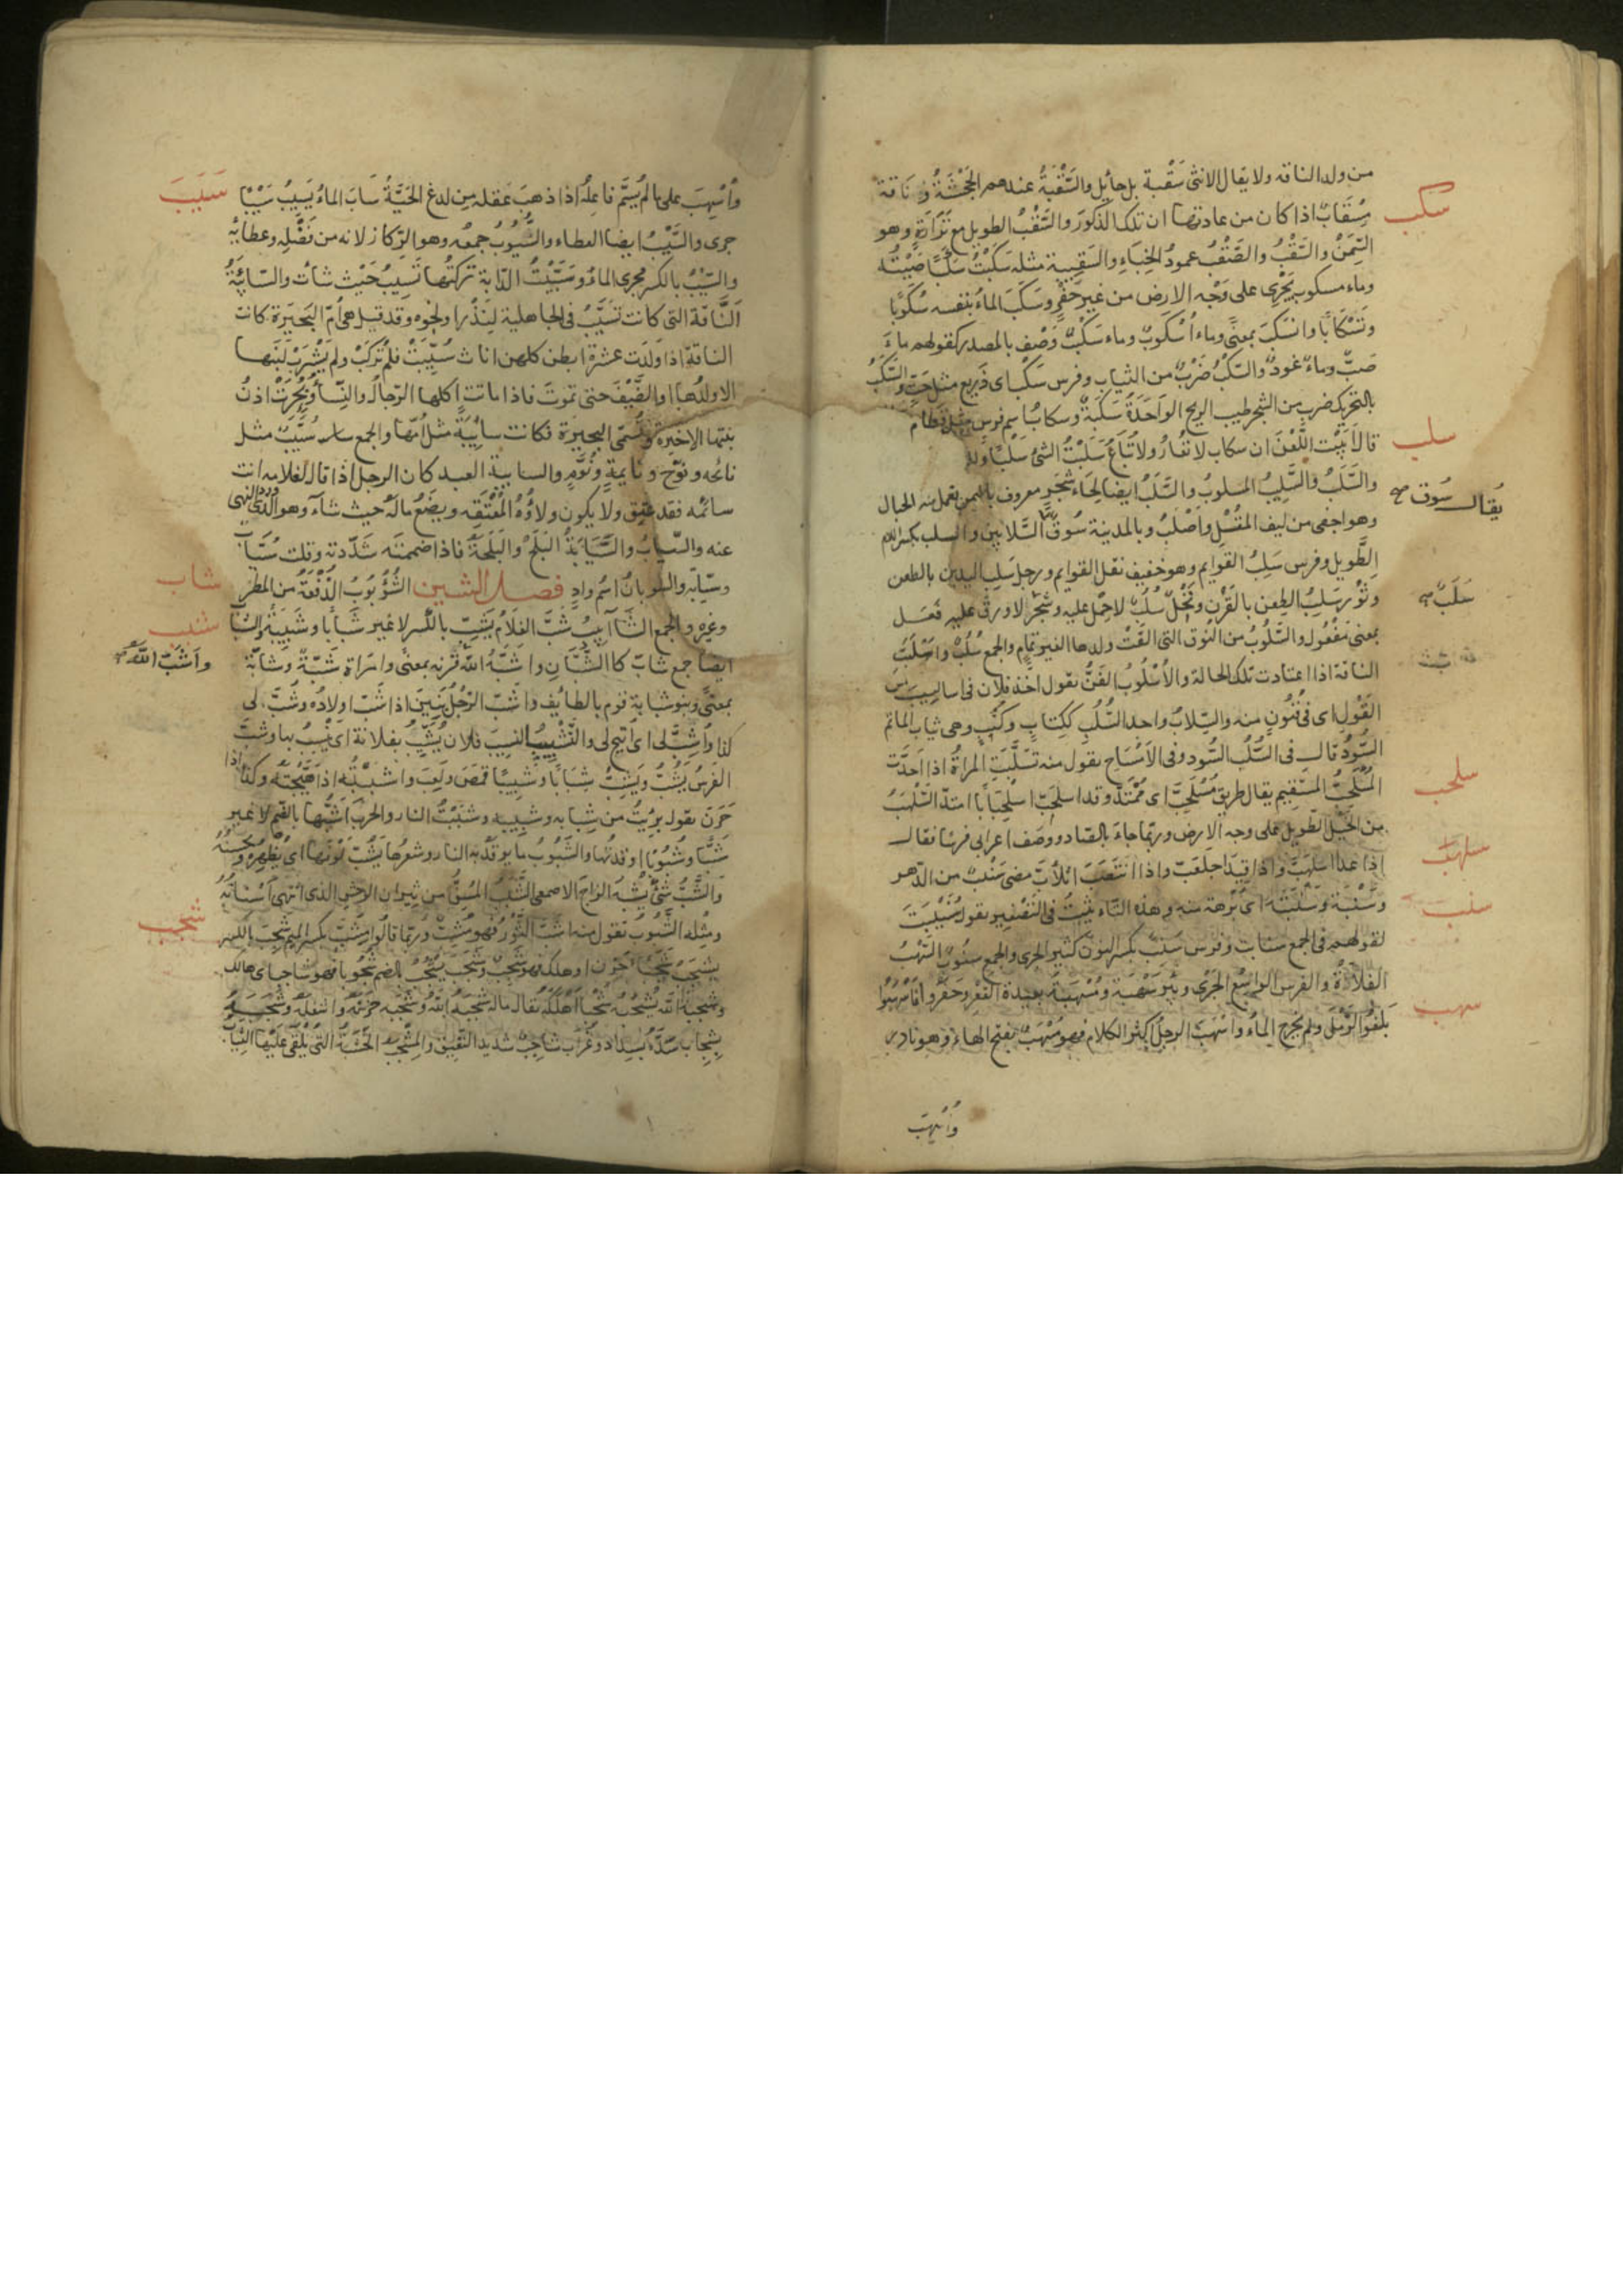 من ولد الناقة ولا يقال للانثى سَقْبة بل حايل والسَّقْبَةُ عندهم الجَحْشَةُ وَنَاقة
سكب
مِسْقَابٌ اذا كان من عادتها ان تلد الذكورَ والسَّقْبُ الطويل مع تَرَارَةٍ وهو
السِّمَنُ والسَّقْبُ والصَّقْبُ عمودُ الخِبَاءِ والسَّقِيبة مثله سَكَبْتُ سَكْبًا صَبَبْتُه
وماء مسكوب يَجْرِى على وَجْه الارض من غير حَفْرٍ وسَكَبَ الماءُ بنفسه سُكُوبًا
وتَسْكَابًا وانسَكَبَ بمعنًى وماء اُسْكُوبٌ وماء سَكْبٌ وَصْف بالمصدر كقولهم ماءٌ
صَبٌّ وماءٌ غَورٌ والسَّكْبُ ضَرْبٌ من الثياب وفرس سَكْبٌ اى ذَرِيع مثل حَتٍّ والسَّكَبُ
بالتحريك ضرب من الشجر طيب الريح الواحَدَةُ سَكَبَةٌ وسكابُ اسم فرس مثل قَطَامِ
سلب
قال اَبَيْتَ اللَّعْنَ ان سكاب لا تُعَارُ ولا تُبَاعُ سَلَبْتُ الشىُ سَلْبًا
والسَّلَبُ والسَّلِيبُ المسلوبُ والسَّلَبُ ايضا لِحَاءُ شَجَرٍ معروف باليمن تعمل منه الحبال
يُقال سُوق
وهو اجفى من ليف المُقْلِ واَصْلَبُ وبالمدينة سُوقُ السَّلّابِينَ والسلب بكسر اللام
الطَّويل وفرس سَلِبُ القَوَايم وهو خفيف نقل القوايم ورجل سَلِب اليدين بالطعن
سُلُبٌ
وثَوْر سَلِبُ الطعن بالقَرْنِ ونَخْلٌ سُلُبٌ لا حِمْلَ عليه وشَجَرٌ لا ورق عليه فَعَل
بمعنى مَفْعُول والسَّلُوبُ من النُوق التى القَتْ ولدها لغير تَمَامٍ والجمع سُلُبٌ واَسْلَبَتِ
الناقة اذا اعتادت تلك الحالة والاُسْلُوبُ الفَنُّ تقول اخذ فلان فى اساليبَ من
القَوْلِ اى فى فُنُونٍ منه والسِّلابُ واحد السُّلُبِ ككِتَابٍ وكُتُبٍ وهى ثياب المآتم
السُّودُ قال فى السُّلُبِ السُّود وفى الاَمْسَاحِ تقول منه تَسَلَّبَتِ المراةُ اذا اَحَدَّتْ
سلحب
المُسْلَحِبُّ المستقيم يقال طريق مُسْلَحِبٌّ اى مُمْتَدٌّ وقد اسلحَبَّ اسْلِحْبَابًا امتدّ السَّلْهَبُ
سلهب
من الخيل الطويل على وجه الارض وربّما جاءَ بالصّاد ووصف اعرابى فرسًا فقال
اذا عدا اسْلَهَبَّ واذا قِيدَ اجلعَبَّ واذا انتَصَبَ اتْلَأَبَّ مضى سَنْبٌ من الدّهر
سنب
وسَنْبَة وسَنْبَتَة اى بُرْهَة منه وهذه التاء تثبتُ فى التّصْغِير تقول سُنَيْبِتَة
لقولهم فى الجمع سنابت وفرس سَنِبٌ بكسر النون كثير الجرى والجمع سنُوبٌ السَّهْبُ
سهب
الفَلَاةُ والفرس الواسِعُ الجَرْىِ وبئر سَهْبَة ومُسْهَبَة بعيدة القَعْرِ وحَفَرُوا فَاَسْهَبُوا
بَلَغُوا الرَّمْلَ ولم يَخْرُج الماءُ واَسْهَبَ الرجلُ اكثر الكلام فهو مُسْهَبٌ بفتح الهاءِ وهو نادر
وَاُسْهِبَ
وَاُسْهِبَ على ما لم يُسَمَّ فاعلُه اذا ذهبَ عقله من لدغ الحَيَّةِ سَابَ الماءُ يَسِيبُ سَيْبًا
سَيَبَ
جرى والسَّيْبُ ايضا العطاء والسُّيُوبُ جمعُه وهو الرّكاز لانه من فَضْلِه وعطايه
والسِّيْبُ بالكسر مَجْرَى الماءِ وسَيَّبْتُ الدّابة تركتُها تَسِيبُ حَيْث شاءت والسّايِبَةُ
النَّاقة التى كانت تُسَيَّبُ فى الجاهلية لنَذْرٍ او نحوه وقد قيل هى اُمّ البَحِيَرة كانت
الناقة اذا وَلَدَت عشرة ابطن كلهن اناث سُيِّبَتْ فلم تُركَبْ ولم يَشْرَبْ لَبَنَها
الا ولدُها او الضَّيْفُ حتى تموتَ فاذا ماتت اكلها الرّجالُ والنِّساءُ وبُحِرَتْ اذنُ
بنتها الاخيرة فتُسَمّى البحيرة فكانت سايِبَةً مثل اُمّها والجمع سُيَّبٌ مثل
نائحه ونُوَّح ونَايمةٍ ونُوَّمٍ والسايبة العبد كان الرجل اذا قال لغلامه انت
سائبه فقد عتق ولا يكون ولاؤُهُ لمُعْتِقِه ويضَعُ مالَهُ حيث شاءَ وهو الذى ورد النهى
عنه والسَّيابُ والسَّيَابَةُ البَلَحُ والبَلَحَةُ فاذا ضممتَه شدّدته وقلت سُيَّابٌ
وسُيَّابَة والسُّوبَانُ اسمُ وادٍ فصل الشين الشُّؤْبُوبُ الدُّفْعَةُ من المطر
شاب
وغيره والجمع الشآبيبُ شَبَّ الغلام يَشِبُّ بالكسر لا غير شَبَابًا وشَبِيبَةً والشبابُ
شبب
ايضا جمع شابّ كالشُّبَّانِ واشَبَّهُ اللّه قَرْنَه بمعنًى وامراة شَبَّةٌ وشابّة
واَشَبّ اللّه
بمعنًى وبنو شبابة قوم بالطايف واشَبَّ الرّجُلُ بَنِينَ اذا شَبّ اولادُه وشُبَّ لى
كذا واُشِبَّ لى اى اُتيحَ لى والتَّشْبِيبُ النسيب فلان يُشَبِّبُ بفلانة اى يَنْسِبُ بها وشَبَّ
الفَرسُ يَشُبُّ ويَشِبُّ شِبَابًا وشَبِيبًا قمصَ ولَعِبَ واشبَبْتُه اذا هَيَّجتَه وكذا اذا
حَرَنَ تقول بَرِيتُ من شِبَابِه وشَبِيبِه وشَبَبْتُ النار والحربَ اَشُبُّها بالضّم لا غير
شَبًّا وشُبُوبًا اوقدتُها والشَّبُوبُ ما يوقَدُ به النار وشعرها يَشُبُّ لَوْنَها اى يُظهِرُه ويُحَسِّنُه
والشَّبُّ شىْءٌ يُشْبِه الزاجَ الاصمعى الشَّبَبُ المُسِنُّ من ثيران الوحش الذى انتهى اَسْنَانُه
ومثله الشَّبُوبُ تقول منه اشَبَّ الثَّوْرُ فهو مُشِبٌّ وربّما قالوا مِشَبٌّ بكسر الميم شَجِبَ بالكسر
شجب
يَشْجَبُ شَجَبًا حَزِنَ او هلك فهو شَجِبٌ وشَجَبَ يَشْجُبُ بالضم شُجُوبًا فهو شاجبٌ اى هالك
وشَجَبَهُ اللّه يَشْجُبُهُ شَجْبًا اَهْلَكَهُ يقال ماله شَجَبَهُ اللّهُ وشَجَبه حزَنَهُ واشغله وشَجَبَهُ
بِشِجَابٍ سَدَّهُ بسِدادٍ وغُرابٌ شاجِبٌ شديد النَّعِيقِ والمِشْجَبُ الخَشَبَةُ التى تُلْقَى عليها الثيابُ